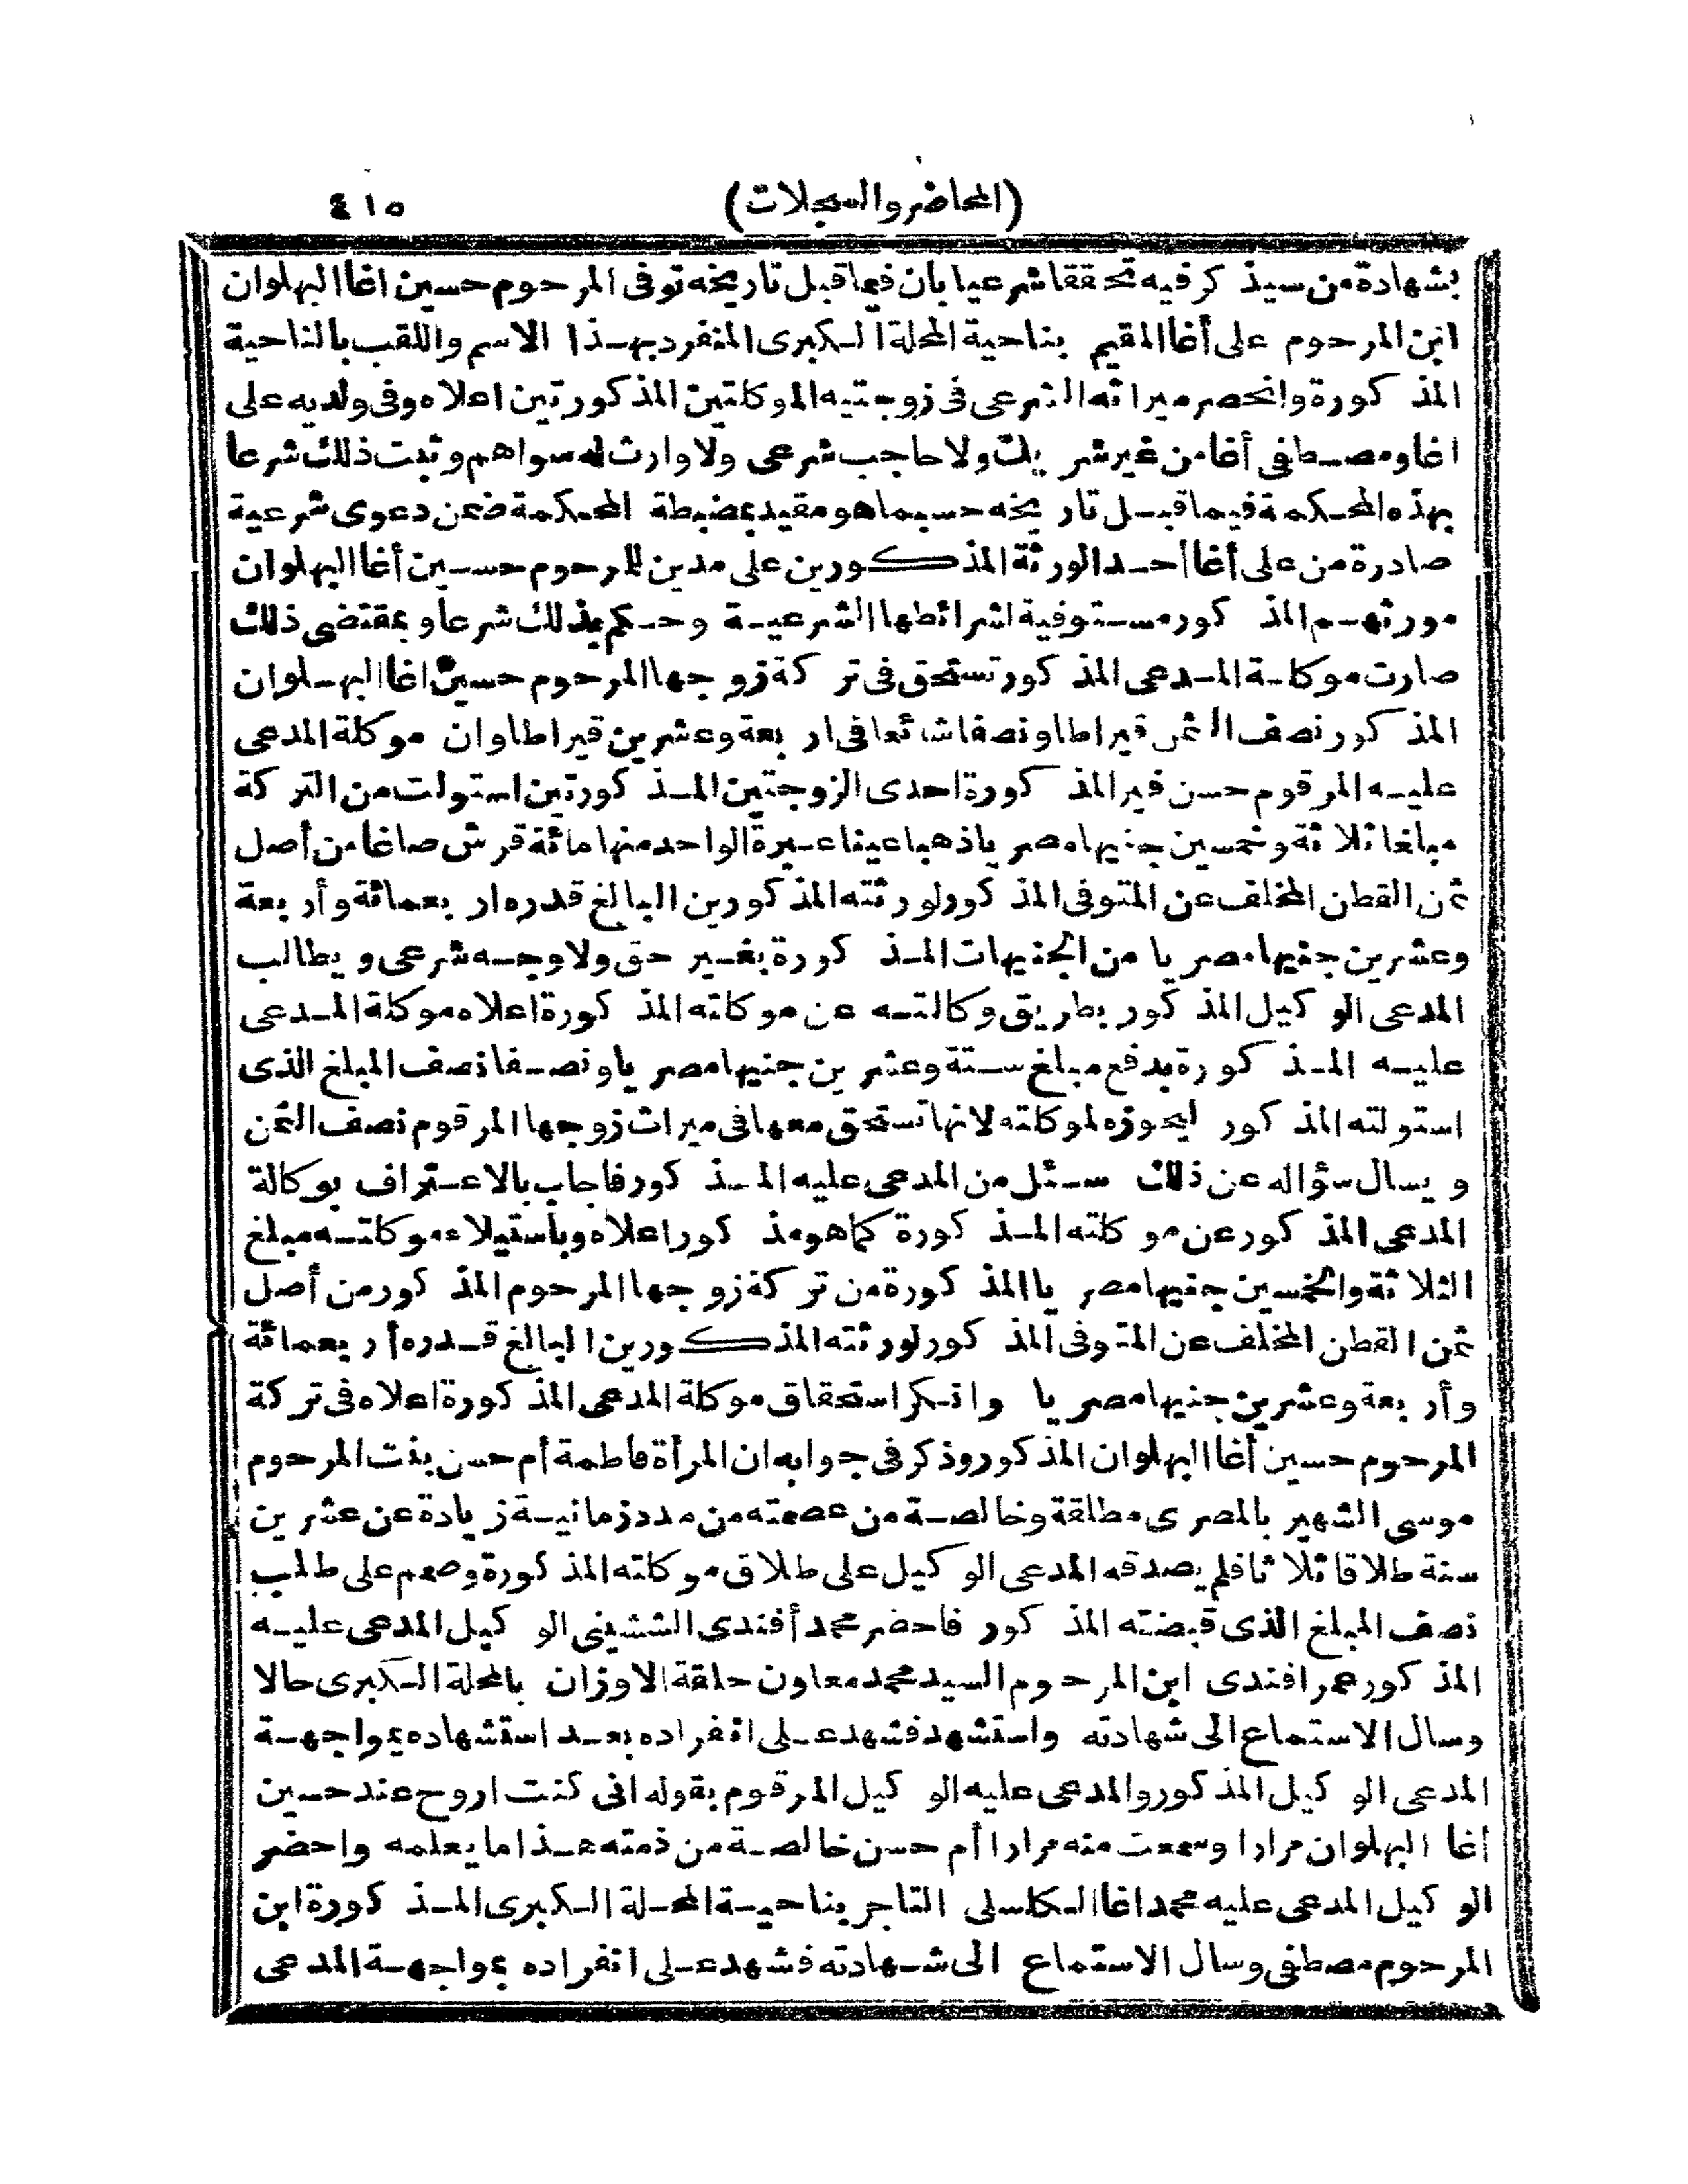 (المحاضر والسجلات) ٤١٥
بشهادة من سيذكر فيه تحققا شرعيا بان فيما قبل تاريخه توفى المرحوم حسين اغا البهلوان
ابن المرحوم على أغا المقيم بناحية المحلة الكبرى المنفرد بهذا الاسم واللقب بالناحية
المذكورة وانحصر ميراثه الشرعى فى زوجتيه الموكلتين المذكورتين اعلاه وفى ولديه على
اغا ومصطفى أغا من غير شريك ولا حاجب شرعى ولا وارث له سواهم وثبت ذلك شرعا
بهذه المحكمة فيما قبل تاريخه حسبما هو مقيد بمضبطة المحكمة ضمن دعوى شرعية
صادرة من على أغا أحد الورثة المذكورين على مدين للمرحوم حسين أغا البهلوان
مورثهم المذكور مستوفية اشرائطها الشرعية وحكم بذلك شرعا وبمقتضى ذلك
صارت موكلة المدعى المذكور تستحق فى تركة زوجها المرحوم حسين اغا البهلوان
المذكور نصف الثمن قيراطا ونصفا شائعا فى اربعة وعشرين قيراطا وان موكلة المدعى
عليه المرقوم حسن فير المذكورة احدى الزوجتين المذكورتين استولت من التركة
مبلغا ثلاثة وخمسين جنيها مصريا ذهبا عينا عبرة الواحد منها مائة قرش صاغا من أصل
ثمن القطن المخلف عن المتوفى المذكور لورثته المذكورين البالغ قدره اربعمائة وأربعة
وعشرين جنيها مصريا من الجنيهات المذكورة بغير حق ولا وجه شرعى ويطالب
المدعى الوكيل المذكور بطريق وكالته عن موكلته المذكورة اعلاه موكلة المدعى
عليه المذكورة بدفع مبلغ ستة وعشرين جنيها مصريا ونصفا نصف المبلغ الذى
استولته المذكور ليحوزه لموكلته لانها تستحق معها فى ميراث زوجها المرقوم نصف الثمن
ويسال سؤاله عن ذلك سئل من المدعى عليه المذكور فاجاب بالاعتراف بوكالة
المدعى المذكور عن موكلته المذكورة كما هو مذكور اعلاه وباستيلاء موكلته مبلغ
الثلاثة والخمسين جنيها مصريا المذكورة من تركة زوجها المرحوم المذكور من أصل
ثمن القطن المخلف عن المتوفى المذكور لورثته المذكورين البالغ قدره أربعمائة
وأربعة وعشرين جنيها مصريا وانكر استحقاق موكلة المدعى المذكورة اعلاه فى تركة
المرحوم حسين أغا البهلوان المذكور وذكر فى جوابه ان المرأة فاطمة أم حسن بنت المرحوم
موسى الشهير بالمصرى مطلقة وخالصة من عصمته من مدد زمانية زيادة عن عشرين
سنة طلاقا ثلاثا فلم يصدقه المدعى الوكيل على طلاق موكلته المذكورة وصمم على طلب
نصف المبلغ الذى قبضته المذكور فاحضر محمد أفندى الششينى الوكيل المدعى عليه
المذكور عمر افندى ابن المرحوم السيد محمد معاون حلقة الاوزان بالمحلة الكبرى حالا
وسال الاستماع الى شهادته واستشهد فشهد على انفراده بعد استشهاده بمواجهة
المدعى الوكيل المذكور والمدعى عليه الوكيل المرقوم بقوله انى كنت اروح عند حسين
أغا البهلوان مرارا وسمعت منه مرارا أم حسن خالصة من ذمته هذا ما يعلمه واحضر
الوكيل المدعى عليه محمد اغا الكلسلى التاجر بناحية المحلة الكبرى المذكورة ابن
المرحوم مصطفى وسال الاستماع الى شهادته فشهد على انفراده بمواجهة المدعى